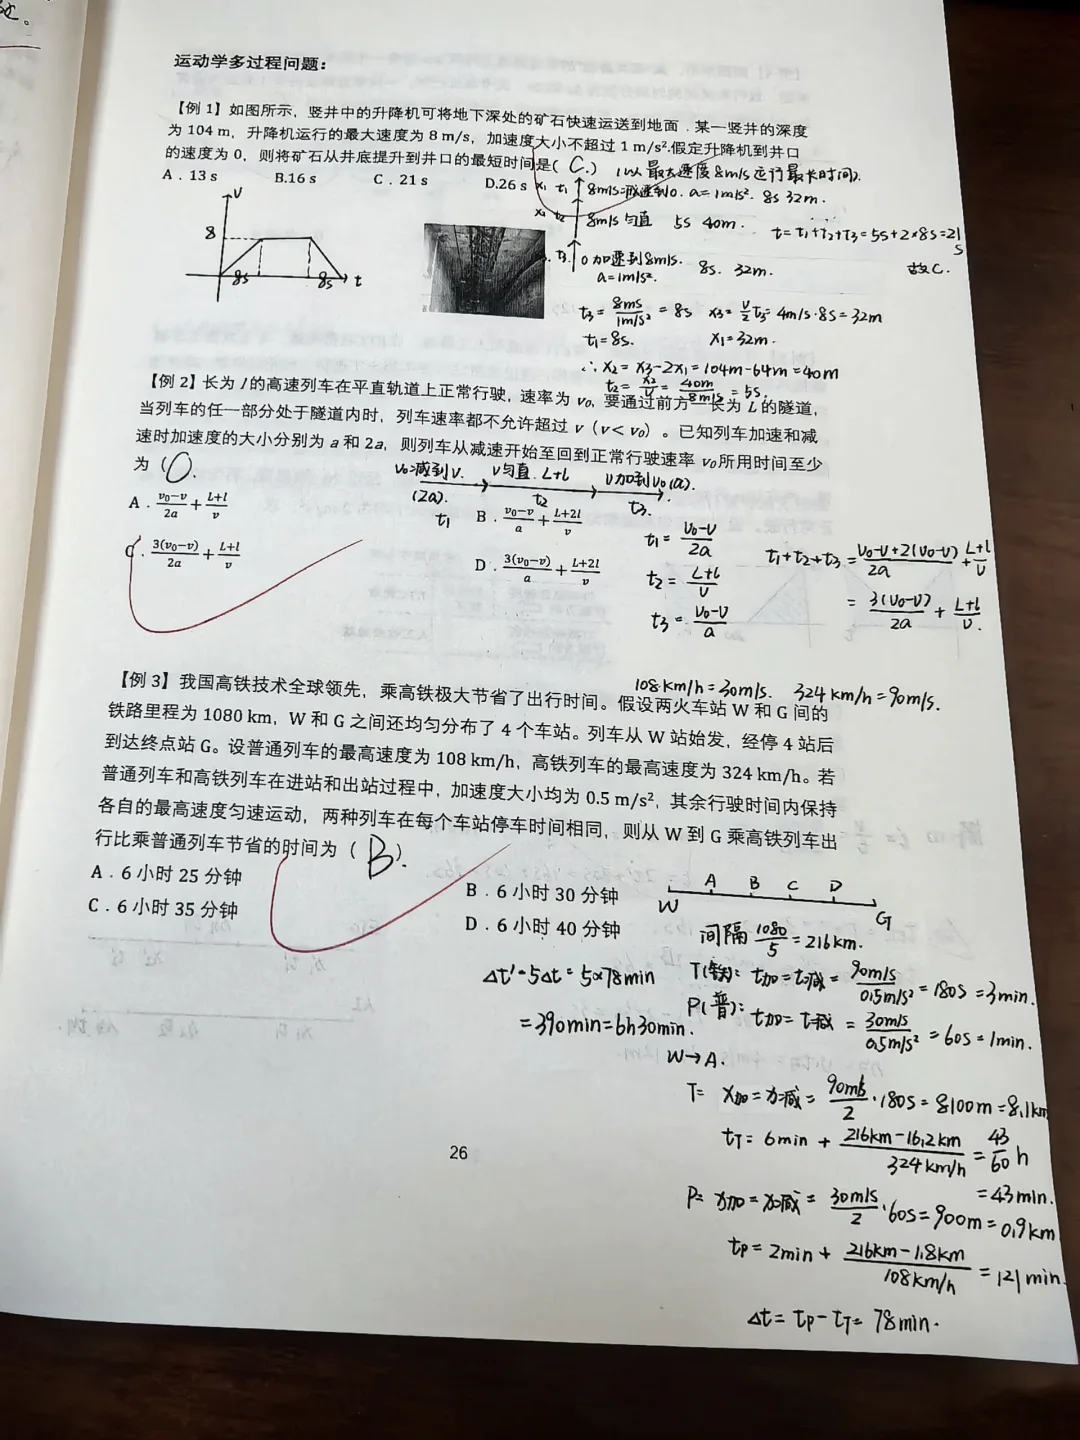 运动学多过程问题：
【例 1】如图所示，竖井中的升降机可将地下深处的矿石快速运送到地面．某一竖井的深度
为 104 m，升降机运行的最大速度为 8 m/s，加速度大小不超过 1 m/s².假定升降机到井口
的速度为 0，则将矿石从井底提升到井口的最短时间是( C. )
(以最大速度8m/s运行最长时间).
A．13 s B.16 s C．21 s D.26 s
V
8
8s 8s t
x₁ t₁ 8m/s减速到0. a=1m/s². 8s 32m.
x₂ t₂ 8m/s 匀直 5s 40m.
t₃ 0加速到8m/s. 8s. 32m.
a=1m/s².
t=t₁+t₂+t₃=5s+2×8s=21
s
故C.
t₃= 8m/s / 1m/s² = 8s x₃= v/2 t₃= 4m/s·8s=32m
t₁=8s. x₁=32m.
∴ x₂= x₃-2x₁=104m-64m=40m
t₂= x₂/v = 40m / 8m/s = 5s.
【例 2】长为 l 的高速列车在平直轨道上正常行驶，速率为 v₀，要通过前方一长为 L 的隧道，
当列车的任一部分处于隧道内时，列车速率都不允许超过 v（v< v₀）。已知列车加速和减
速时加速度的大小分别为 a 和 2a，则列车从减速开始至回到正常行驶速率 v₀所用时间至少
为（
V₀减到V. V匀直. L+l V加到V₀(a).
(2a). t₂ t₃.
t₁
A．(v₀−v)/2a + (L+l)/v
B．(v₀−v)/a + (L+2l)/v
C．3(v₀−v)/2a + (L+l)/v
D．3(v₀−v)/a + (L+2l)/v
t₁= (V₀-V)/2a
t₂= (L+l)/V
t₃= (V₀-V)/a
t₁+t₂+t₃= (V₀-V+2(V₀-V))/2a + (L+l)/V
= 3(V₀-V)/2a + (L+l)/V.
108km/h=30m/s. 324km/h=90m/s.
【例 3】我国高铁技术全球领先，乘高铁极大节省了出行时间。假设两火车站 W 和 G 间的
铁路里程为 1080 km，W 和 G 之间还均匀分布了 4 个车站。列车从 W 站始发，经停 4 站后
到达终点站 G。设普通列车的最高速度为 108 km/h，高铁列车的最高速度为 324 km/h。若
普通列车和高铁列车在进站和出站过程中，加速度大小均为 0.5 m/s²，其余行驶时间内保持
各自的最高速度匀速运动，两种列车在每个车站停车时间相同，则从 W 到 G 乘高铁列车出
行比乘普通列车节省的时间为（ B ）.
A．6 小时 25 分钟 B．6 小时 30 分钟
C．6 小时 35 分钟 D．6 小时 40 分钟
W A B C D G
间隔 1080/5 = 216km.
Δt'=5Δt=5×78min
=390min=6h30min.
T(铁): t加=t减= 90m/s / 0.5m/s² =180s=3min.
P(普): t加=t减= 30m/s / 0.5m/s² =60s=1min.
W→A.
T= x加=x减= 90m/s / 2 ·180s=8100m=8.1km
tT= 6min + (216km-16.2km) / 324km/h = 43/60 h
=43min.
P= x加=x减= 30m/s / 2 ·60s=900m=0.9km
tP=2min+ (216km-1.8km) / 108km/h =121min.
Δt= tP-tT= 78min.
26